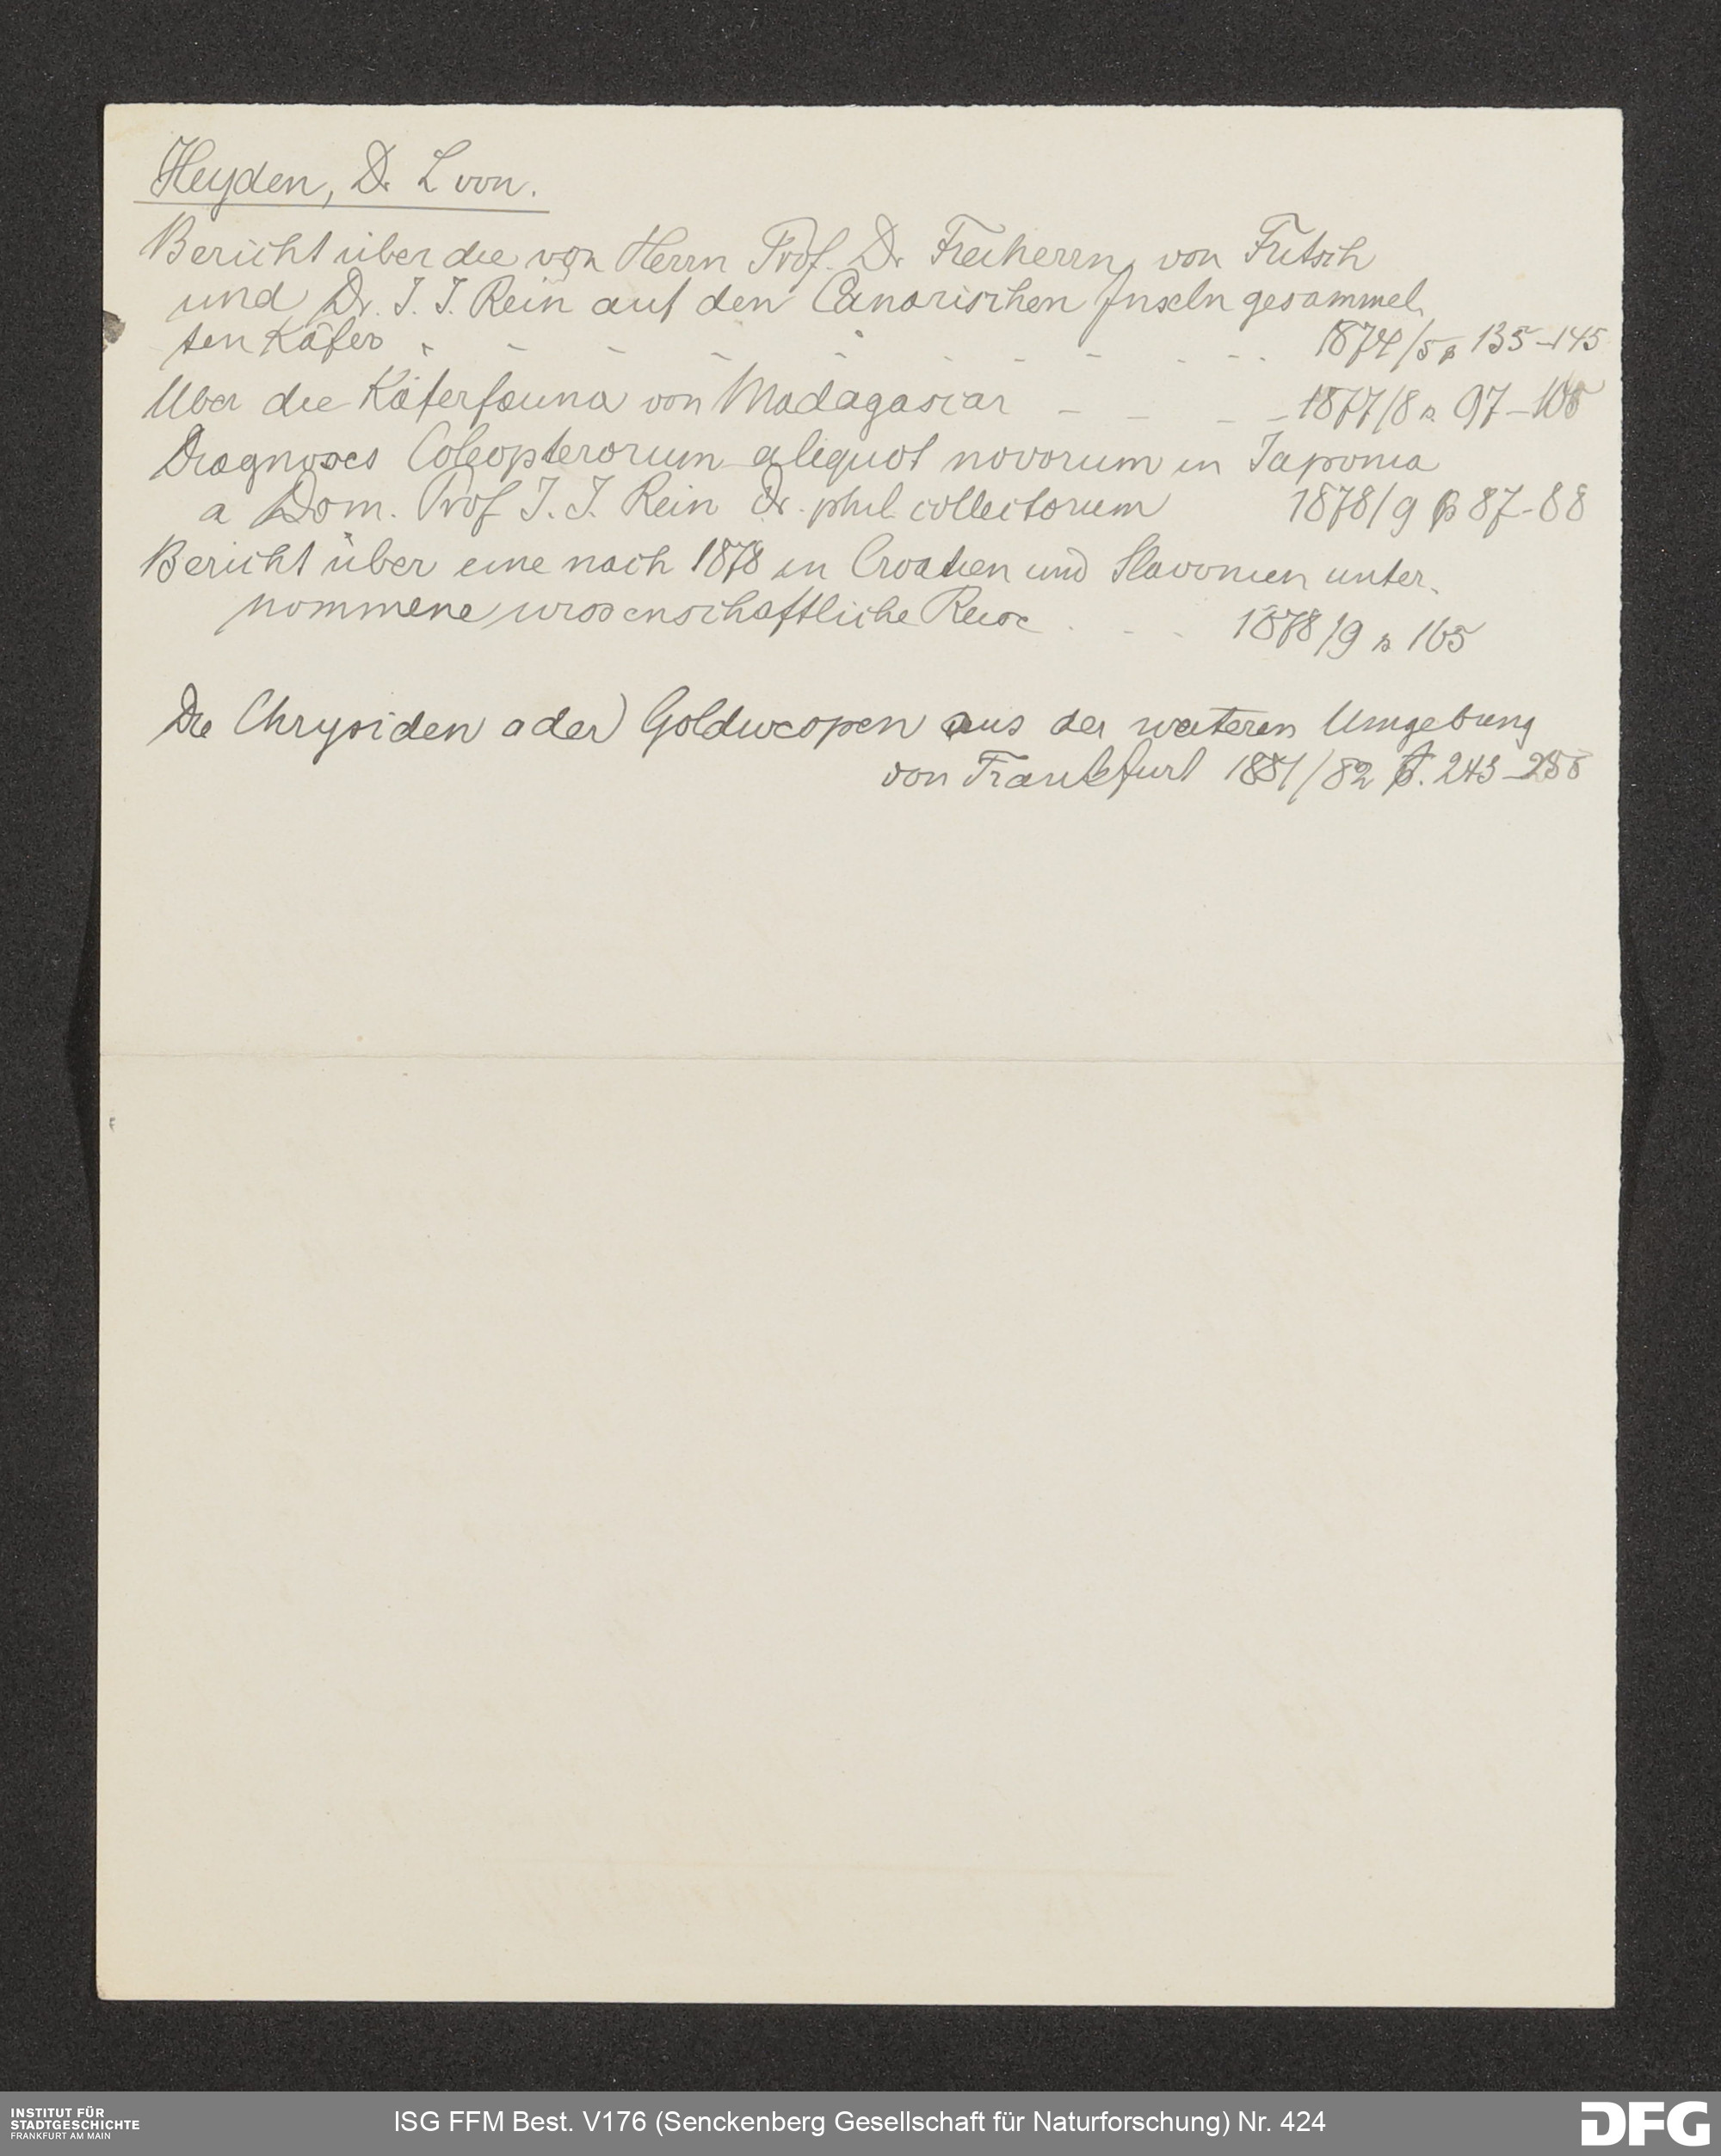 Heyden, Dr. L von.
Bericht über die von Herrn Prof. Dr. Freiherrn von Fritsch
und Dr. J. J. Rein auf den Canarischen Inseln gesammel-
ten Käfer - - - - - - - - - - - 1874/5 p 135-145
Uber die Käferfauna von Madagascar - - - - 1877/8 p. 97-105
Diagnoses Coleopterorum aliquot novorum in Japonia
a Dom. Prof J. J. Rein Dr. phil. collectorum 1878/9 p 87-88
Bericht über eine nach 1878 in Croatien und Slavonien unter-
nommene wissenschaftliche Reise . - - - 1878/9 p 165
Die Chrysiden oder Goldwespen aus der weiteren Umgebung
von Frankfurt 1881/82 p. 243-255
INSTITUT FÜR
STADTGESCHICHTE
FRANKFURT AM MAIN
ISG FFM Best. V176 (Senckenberg Gesellschaft für Naturforschung) Nr. 424
DFG